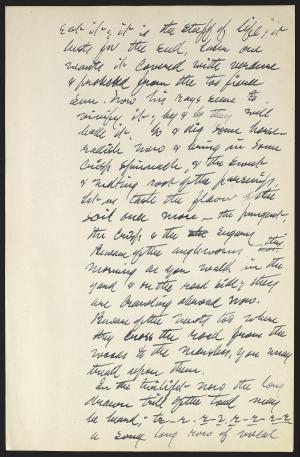 eat it; it is the stuff of life; it
lusts for the seed, even one
wants it covered with verdure
& protected from the too fierce
sun. Now his rays seem to
vivify it, by & by they will
bake it. Go & dig some horse-
radish now & bring in some
crisp spinnable, & the sweet
& melting root of the parsnips.
Let us taste the flavor of the
soil once more — the pungent,
the crisp & the sugary
Beware of the angleworms this
morning as you walk in the
yard & on the road side; they
are crawling abroad now.
Beware of the newts too where
they cross the road from the
woods to the marshes, you may
tread upon them.
In the twilight now the long
drawn trill of the toad may
be heard, tr-r-r-r-r-r-r-r
a long long row of vocal